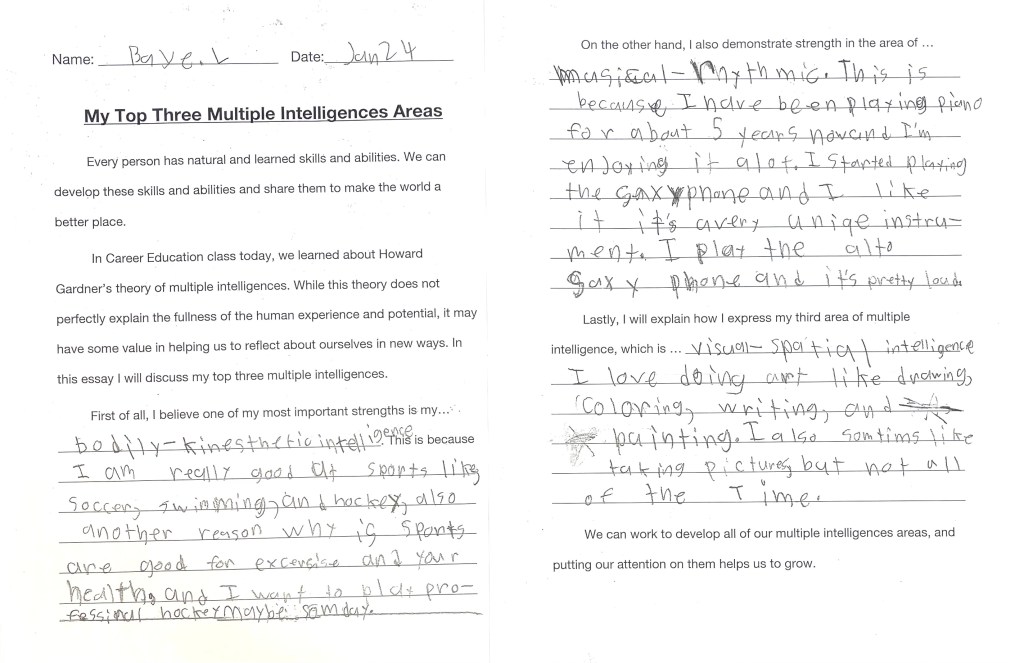 Name: Baye.L Date: Jan 24
My Top Three Multiple Intelligences Areas
Every person has natural and learned skills and abilities. We can
develop these skills and abilities and share them to make the world a
better place.
In Career Education class today, we learned about Howard
Gardner's theory of multiple intelligences. While this theory does not
perfectly explain the fullness of the human experience and potential, it may
have some value in helping us to reflect about ourselves in new ways. In
this essay I will discuss my top three multiple intelligences.
First of all, I believe one of my most important strengths is my...
bodily-kinesthetic intelligence. This is because
I am really good at sports like
soccer, swimming, and hockey, also
another reason why is sports
are good for excersise and your
health, and I want to play pro-
fessional hockey maybe somday.
On the other hand, I also demonstrate strength in the area of ...
musical-rhythmic. This is
because, I have been playing piano
for about 5 years now and I'm
enjoying it alot. I started playing
the saxyphone and I like
it it's a very uniqe instru-
ment. I play the alto
saxyphone and it's pretty loud.
Lastly, I will explain how I express my third area of multiple
intelligence, which is ... visual-spatial intelligence
I love doing art like drawing,
coloring, writing, and
painting. I also somtims like
taking pictures but not all
of the Time.
We can work to develop all of our multiple intelligences areas, and
putting our attention on them helps us to grow.